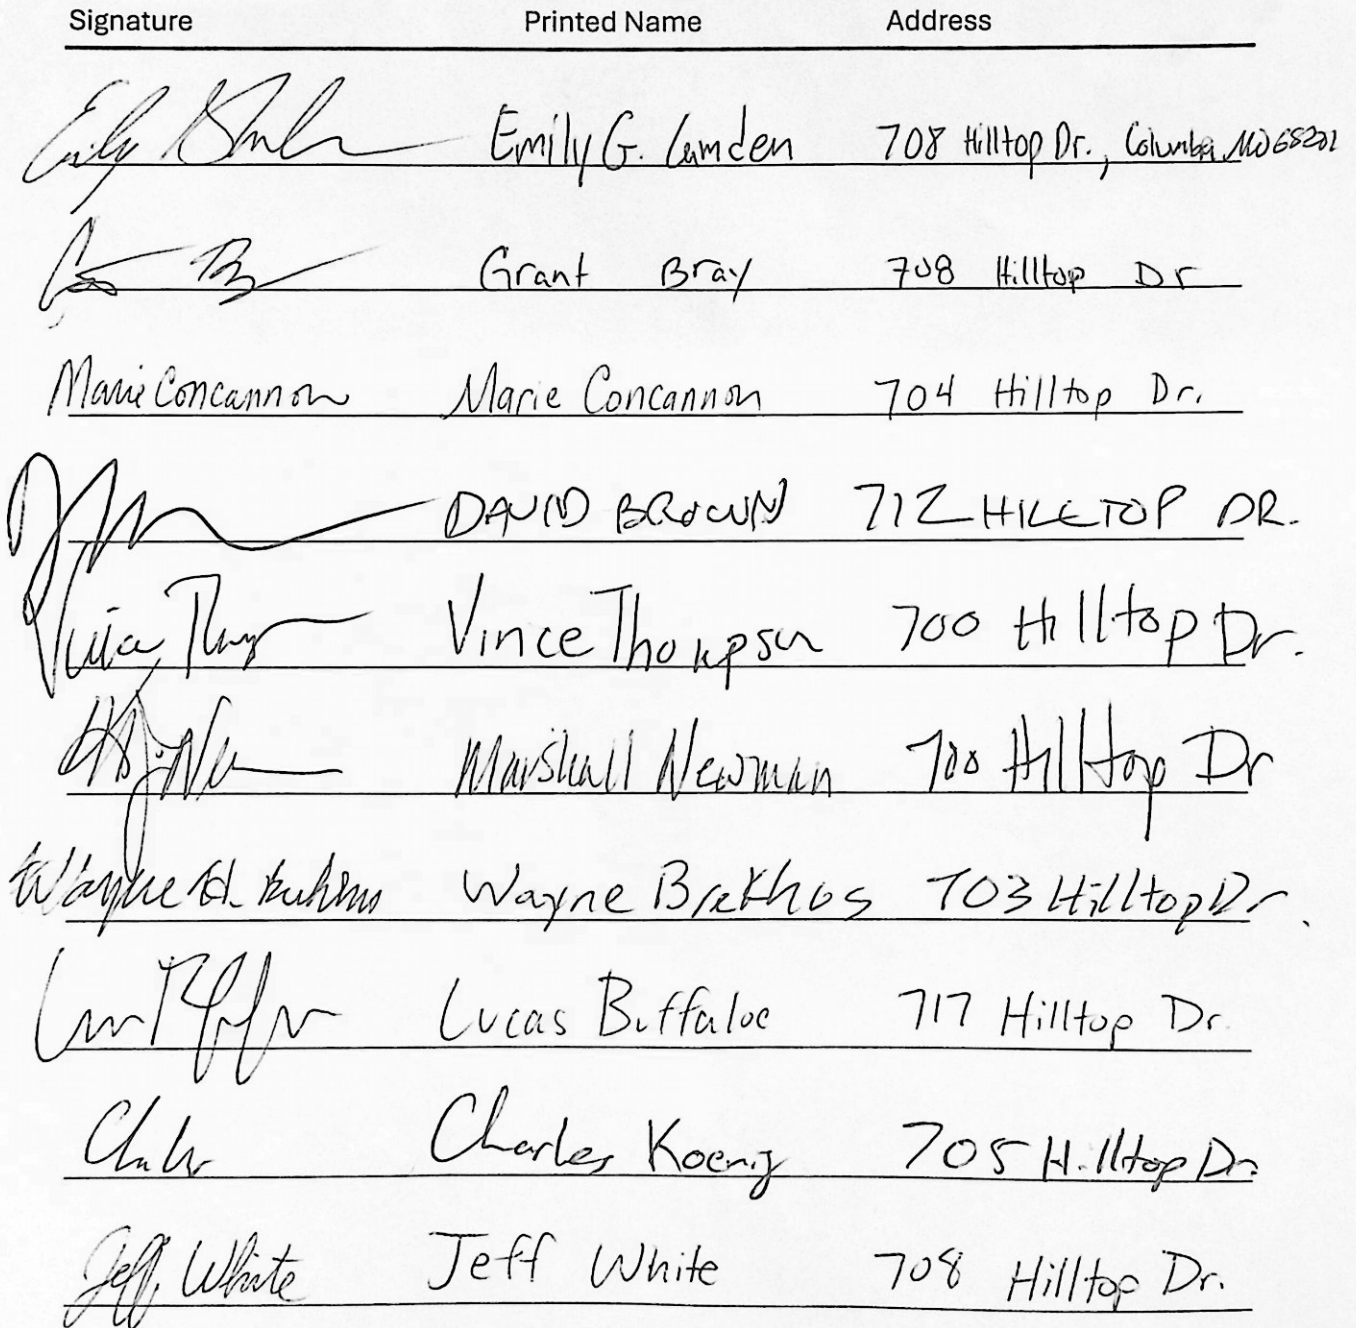 Signature Printed Name Address
Emily G. Camden 708 Hilltop Dr., Columbia, MO 65201
Grant Bray 708 Hilltop Dr
Marie Concannon Marie Concannon 704 Hilltop Dr.
DAVID BROWN 712 HILLTOP DR.
Vince Thompson 700 Hilltop Dr.
Marshall Newman 700 Hilltop Dr
Wayne H. Brekhus Wayne Brekhus 703 Hilltop Dr.
Lucas Buffaloe 717 Hilltop Dr.
Charles Koenig 705 Hilltop Dr.
Jeff White Jeff White 708 Hilltop Dr.